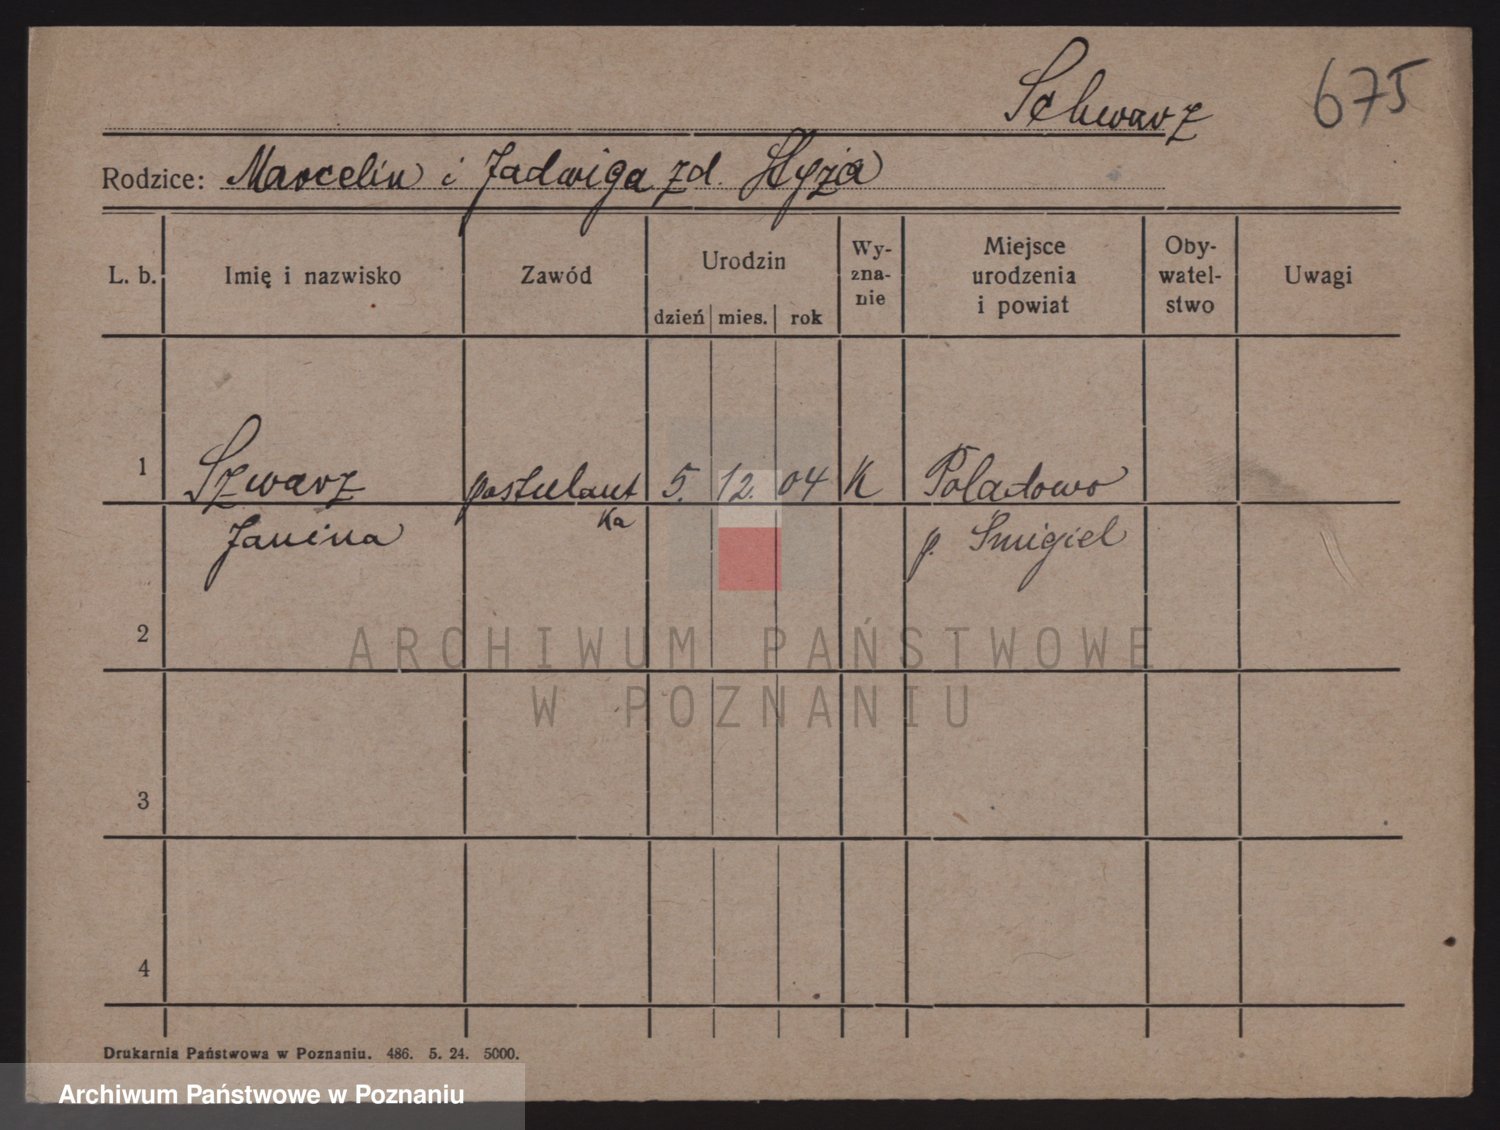 Schwarz 675
Rodzice: Marcelin i Jadwiga zd. Hyża
L. b. Imię i nazwisko Zawód Urodzin dzień mies. rok Wy-zna-nie Miejsce urodzenia i powiat Oby-watel-stwo Uwagi
1 Szwarz postulant 5. 12. 04 K Poladowo
Janina ka p. Śmigiel
2
3
4
ARCHIWUM PAŃSTWOWE
W POZNANIU
Drukarnia Państwowa w Poznaniu. 486. 5. 24. 5000.
Archiwum Państwowe w Poznaniu